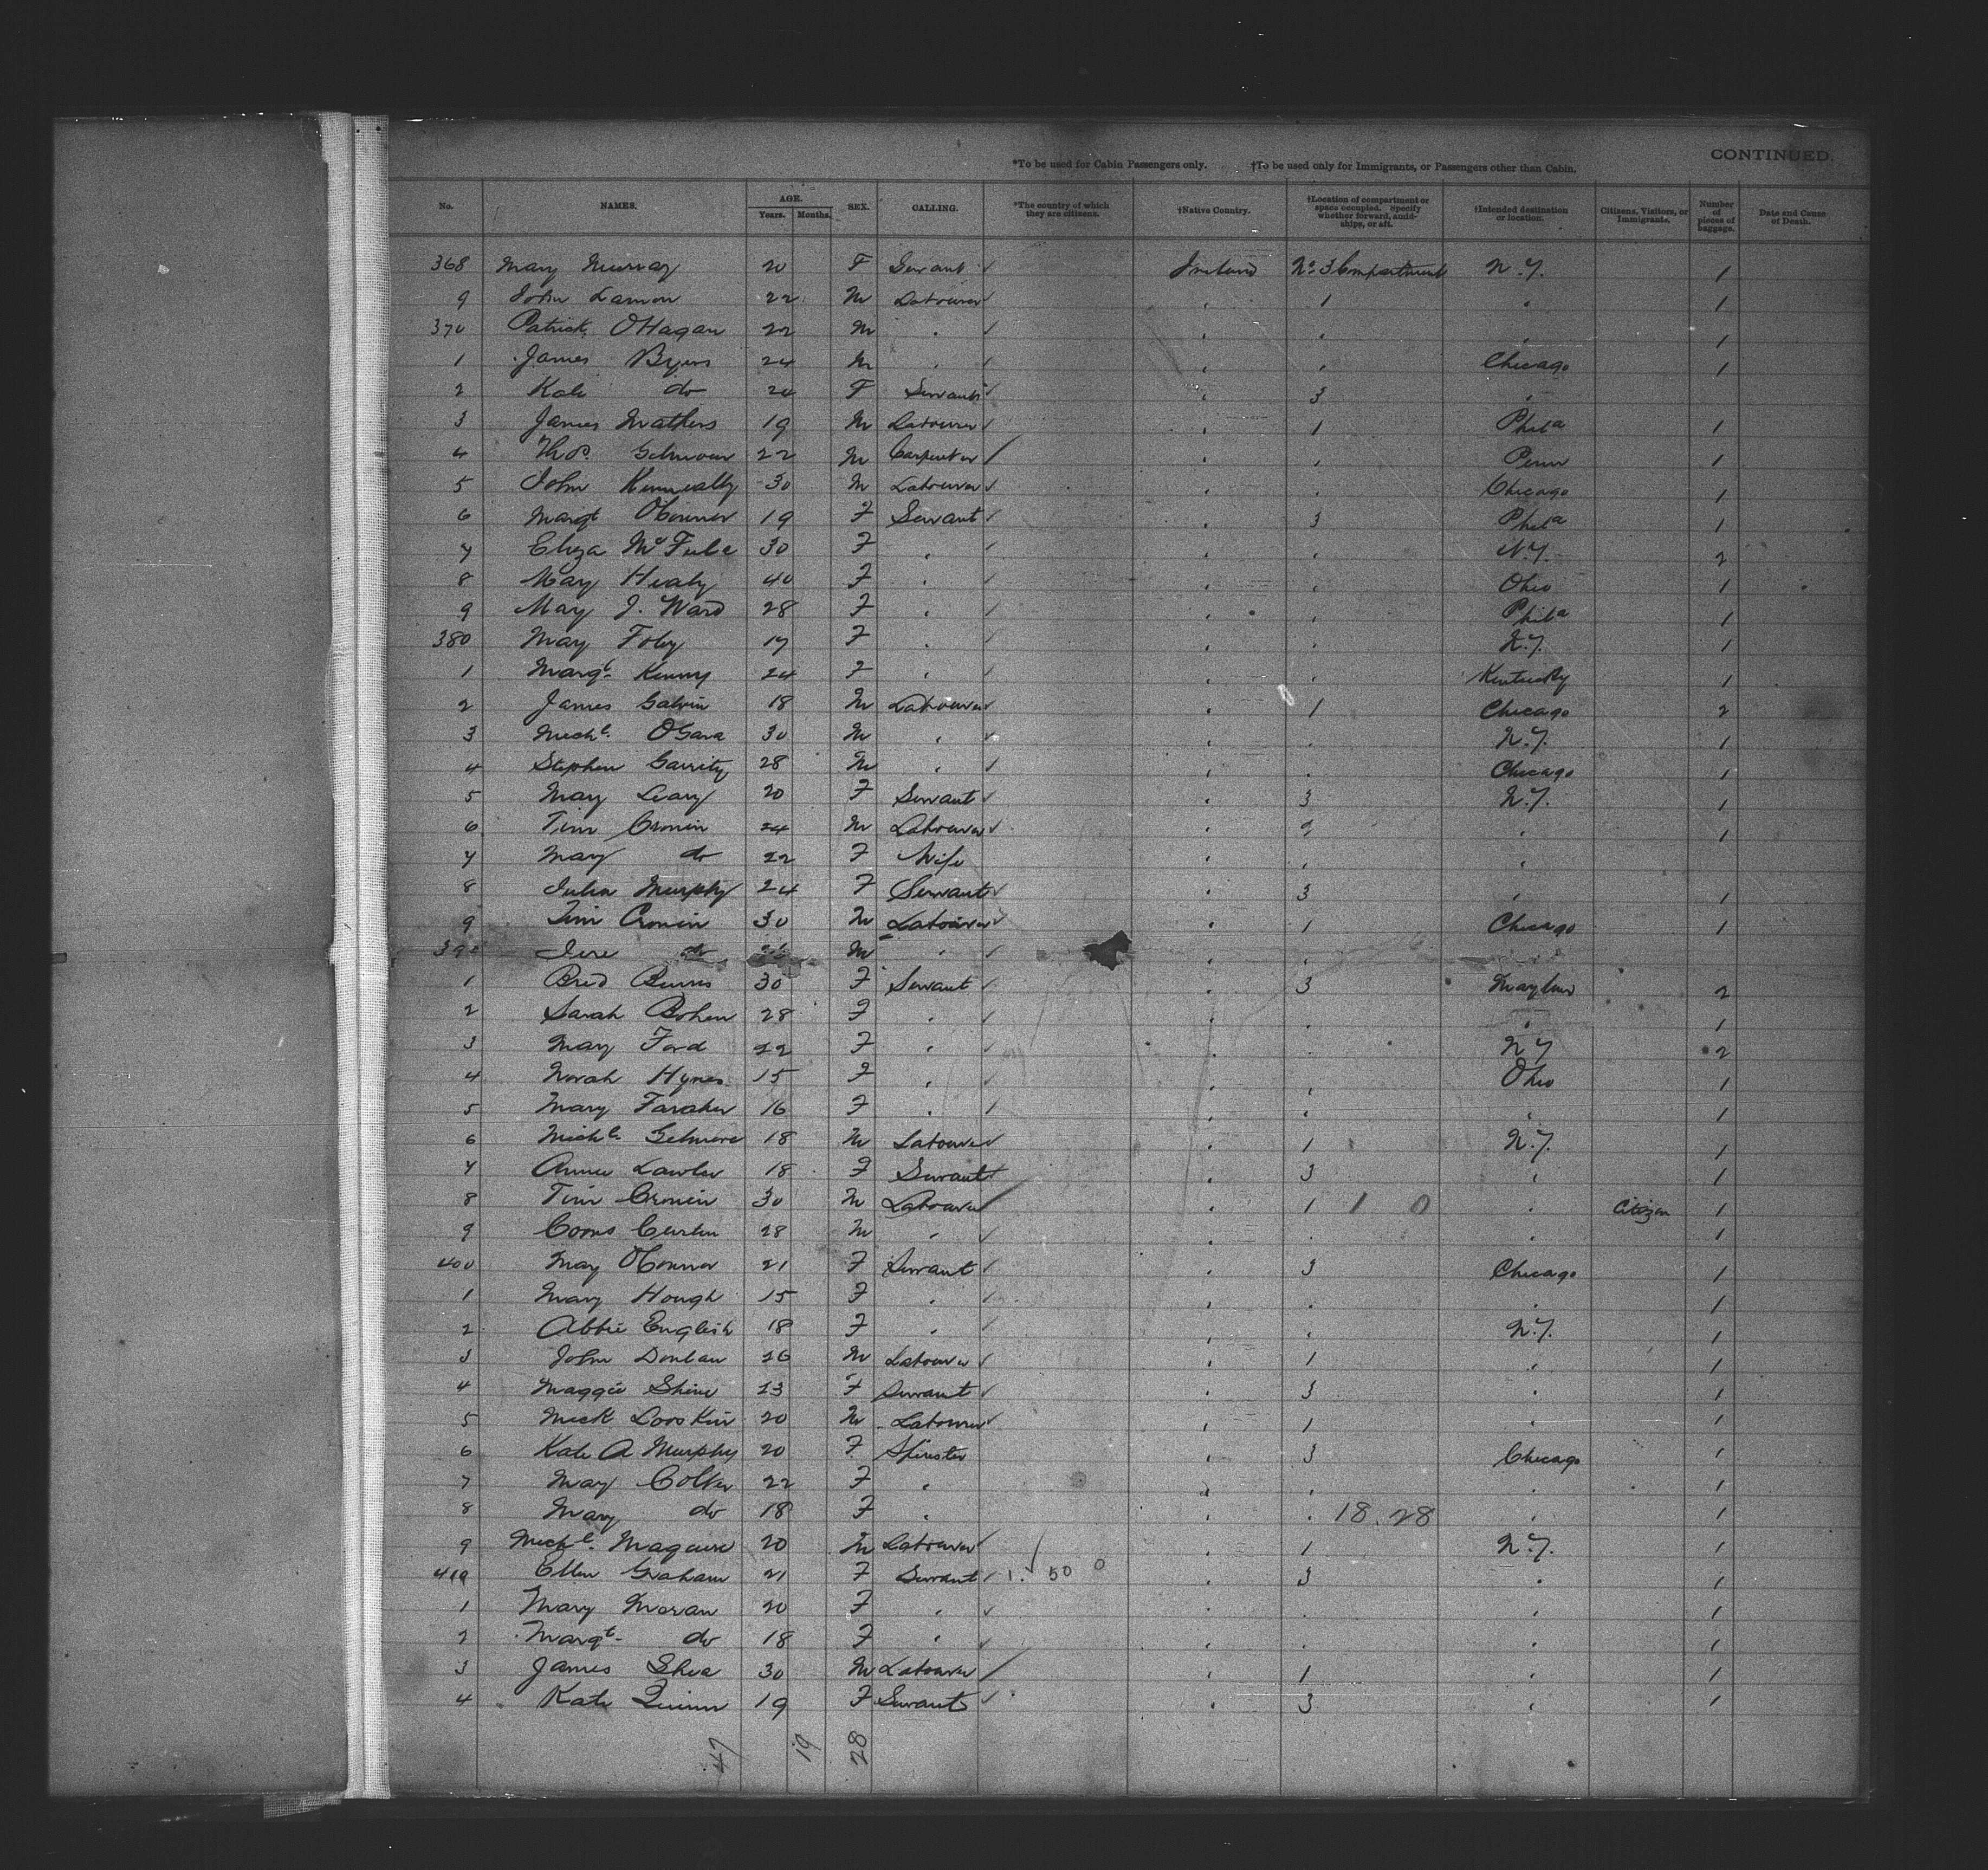 CONTINUED.
*To be used for Cabin Passengers only. †To be used only for Immigrants, or Passengers other than Cabin.
No. NAMES. AGE. Years. Months. SEX. CALLING. *The country of which they are citizens. †Native Country. †Location of compartment or space occupied. Specify whether forward, amidships, or aft. †Intended destination or location. Citizens, Visitors, or Immigrants. Number of pieces of baggage. Date and Cause of Death.
368 Mary Murray 20 F Servant Ireland No. 3 Compartment N.Y. 1
9 John 22 M Labourer 1 " 1
370 Patrick O'Hagan 22 M " " " " 1
1 James Byers 24 M " " " Chicago 1
2 Kate do 20 F Servant " 3 "
3 James Mathers 19 M Labourer " 1 Phila 1
4 Thos. Gilmour 22 M Carpenter " " Penn 1
5 John Kennealty 30 M Labourer " " Chicago 1
6 Margt O'Connor 19 F Servant " 3 Phila 1
7 Eliza 30 F " " " N.Y. 2
8 Mary Healy 40 F " " " Ohio 1
9 Mary J. Ward 28 F " " " Phila 1
380 Mary Foley 17 F " " " N.Y. 1
1 Margt. Kenny 24 F " " " Kentucky 1
2 James Galvin 18 M Labourer " 1 Chicago 2
3 Michl. O'Gara 30 M " " " N.Y. 1
4 Stephen Garrity 28 M " " " Chicago 1
5 Mary Leary 20 F Servant " 3 N.Y. 1
6 Tim Cronin 24 M Labourer " 2 " 1
7 Mary do 22 F Wife " " "
8 Julia Murphy 24 F Servant " 3 " 1
9 Tim Cronin 30 M Labourer " 1 Chicago 1
390 Jere do M " " "
1 Brid Burns 30 F Servant " 3 2
2 Sarah Bohen 28 F " " " " 1
3 Mary Ford 22 F " " " N.Y. 2
4 Norah Hynes 15 F " " " Ohio 1
5 Mary Faraher 16 F " " " " 1
6 Michl. Gilmore 18 M Labourer " 1 N.Y. 1
7 Annie Lawler 18 F Servant " 3 " 1
8 Tim Cronin 30 M Labourer " 1 1 0 " Citizen 1
9 Corns Curtin 28 M " " " " 1
400 Mary O'Connor 21 F Servant " 3 Chicago 1
1 Mary Hough 15 F " " " " 1
2 Abbie English 18 F " " " N.Y. 1
3 John Donlan 26 M Labourer " 1 " 1
4 Maggie Shine 23 F Servant " 3 " 1
5 Mick 20 M Labourer " 1 " 1
6 Kate A Murphy 20 F Spinster " 3 Chicago 1
7 Mary Colter 22 F " " " " 1
8 Mary do 18 F " " " 18.28 " 1
9 Michl. Maguire 20 M Labourer " 1 N.Y. 1
410 Ellen Graham 21 F Servant 1. 50 0 " 3 " 1
1 Mary Moran 20 F " " " " 1
2 Margt. do 18 F " " " " 1
3 James Shea 30 M Labourer " 1 " 1
4 Kate Quinn 19 F Servant " 3 " 1
47 19 28